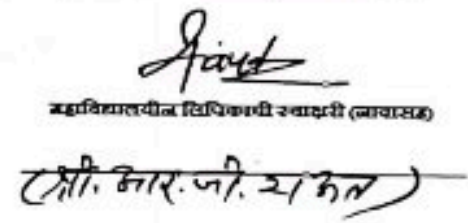 महाविद्यालयीन लिपिकाची स्वाक्षरी (नावासह)
(श्री. आर. जी. राऊत)